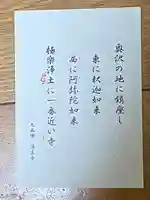 奥沢の地に鎮座し
東に釈迦如来
西に阿弥陀如来
極楽浄土に一番近い寺
九品山 浄真寺